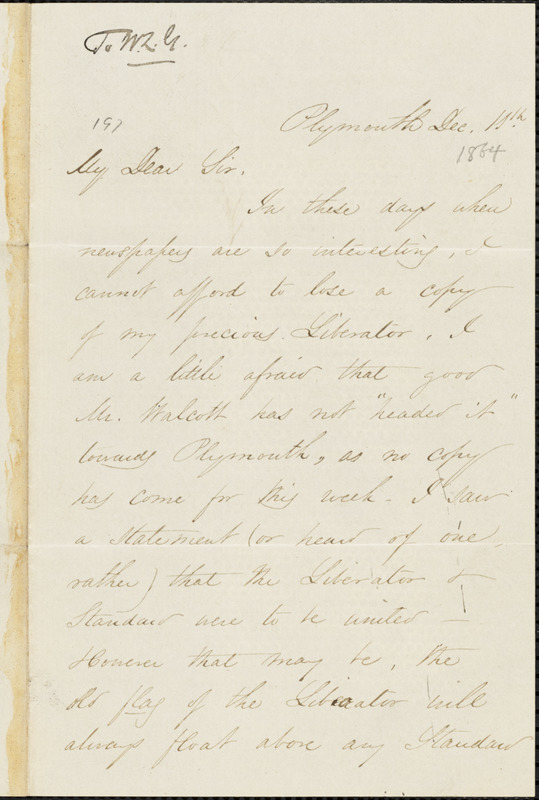 To W.L.G.
197
Plymouth Dec. 11th
1864
My Dear Sir.
In these days when
newspapers are so interesting, I
cannot afford to lose a copy
of my precious Liberator. I
am a little afraid that good
Mr. Walcott has not "headed it"
towards Plymouth, as no copy
has come for this week - I saw
a statement (or heard of one,
rather) that the Liberator &
Standard were to be united -
However that may be, the
old flag of the Liberator will
always float above any Standard